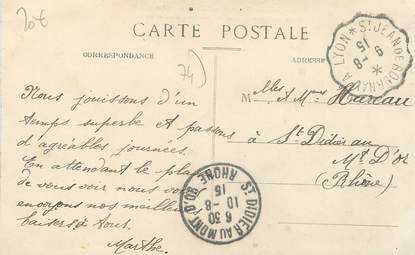 20€
CARTE POSTALE
CORRESPONDANCE
ADRESSE
74)
Nous jouissons d'un
temps superbe et passons
d'agréables journées.
En attendant le plai
de vous voir nous vous
envoyons nos meilleurs
baisers à tous.
Marthe.
M elles & Mmes Hureau
à St Didier au
Mt D'or
(Rhône)
ST JEAN DE BOURNAY A LYON
9 - 8
15
ST DIDIER AU MONT D'OR
RHONE
6 30
10 - 8
15